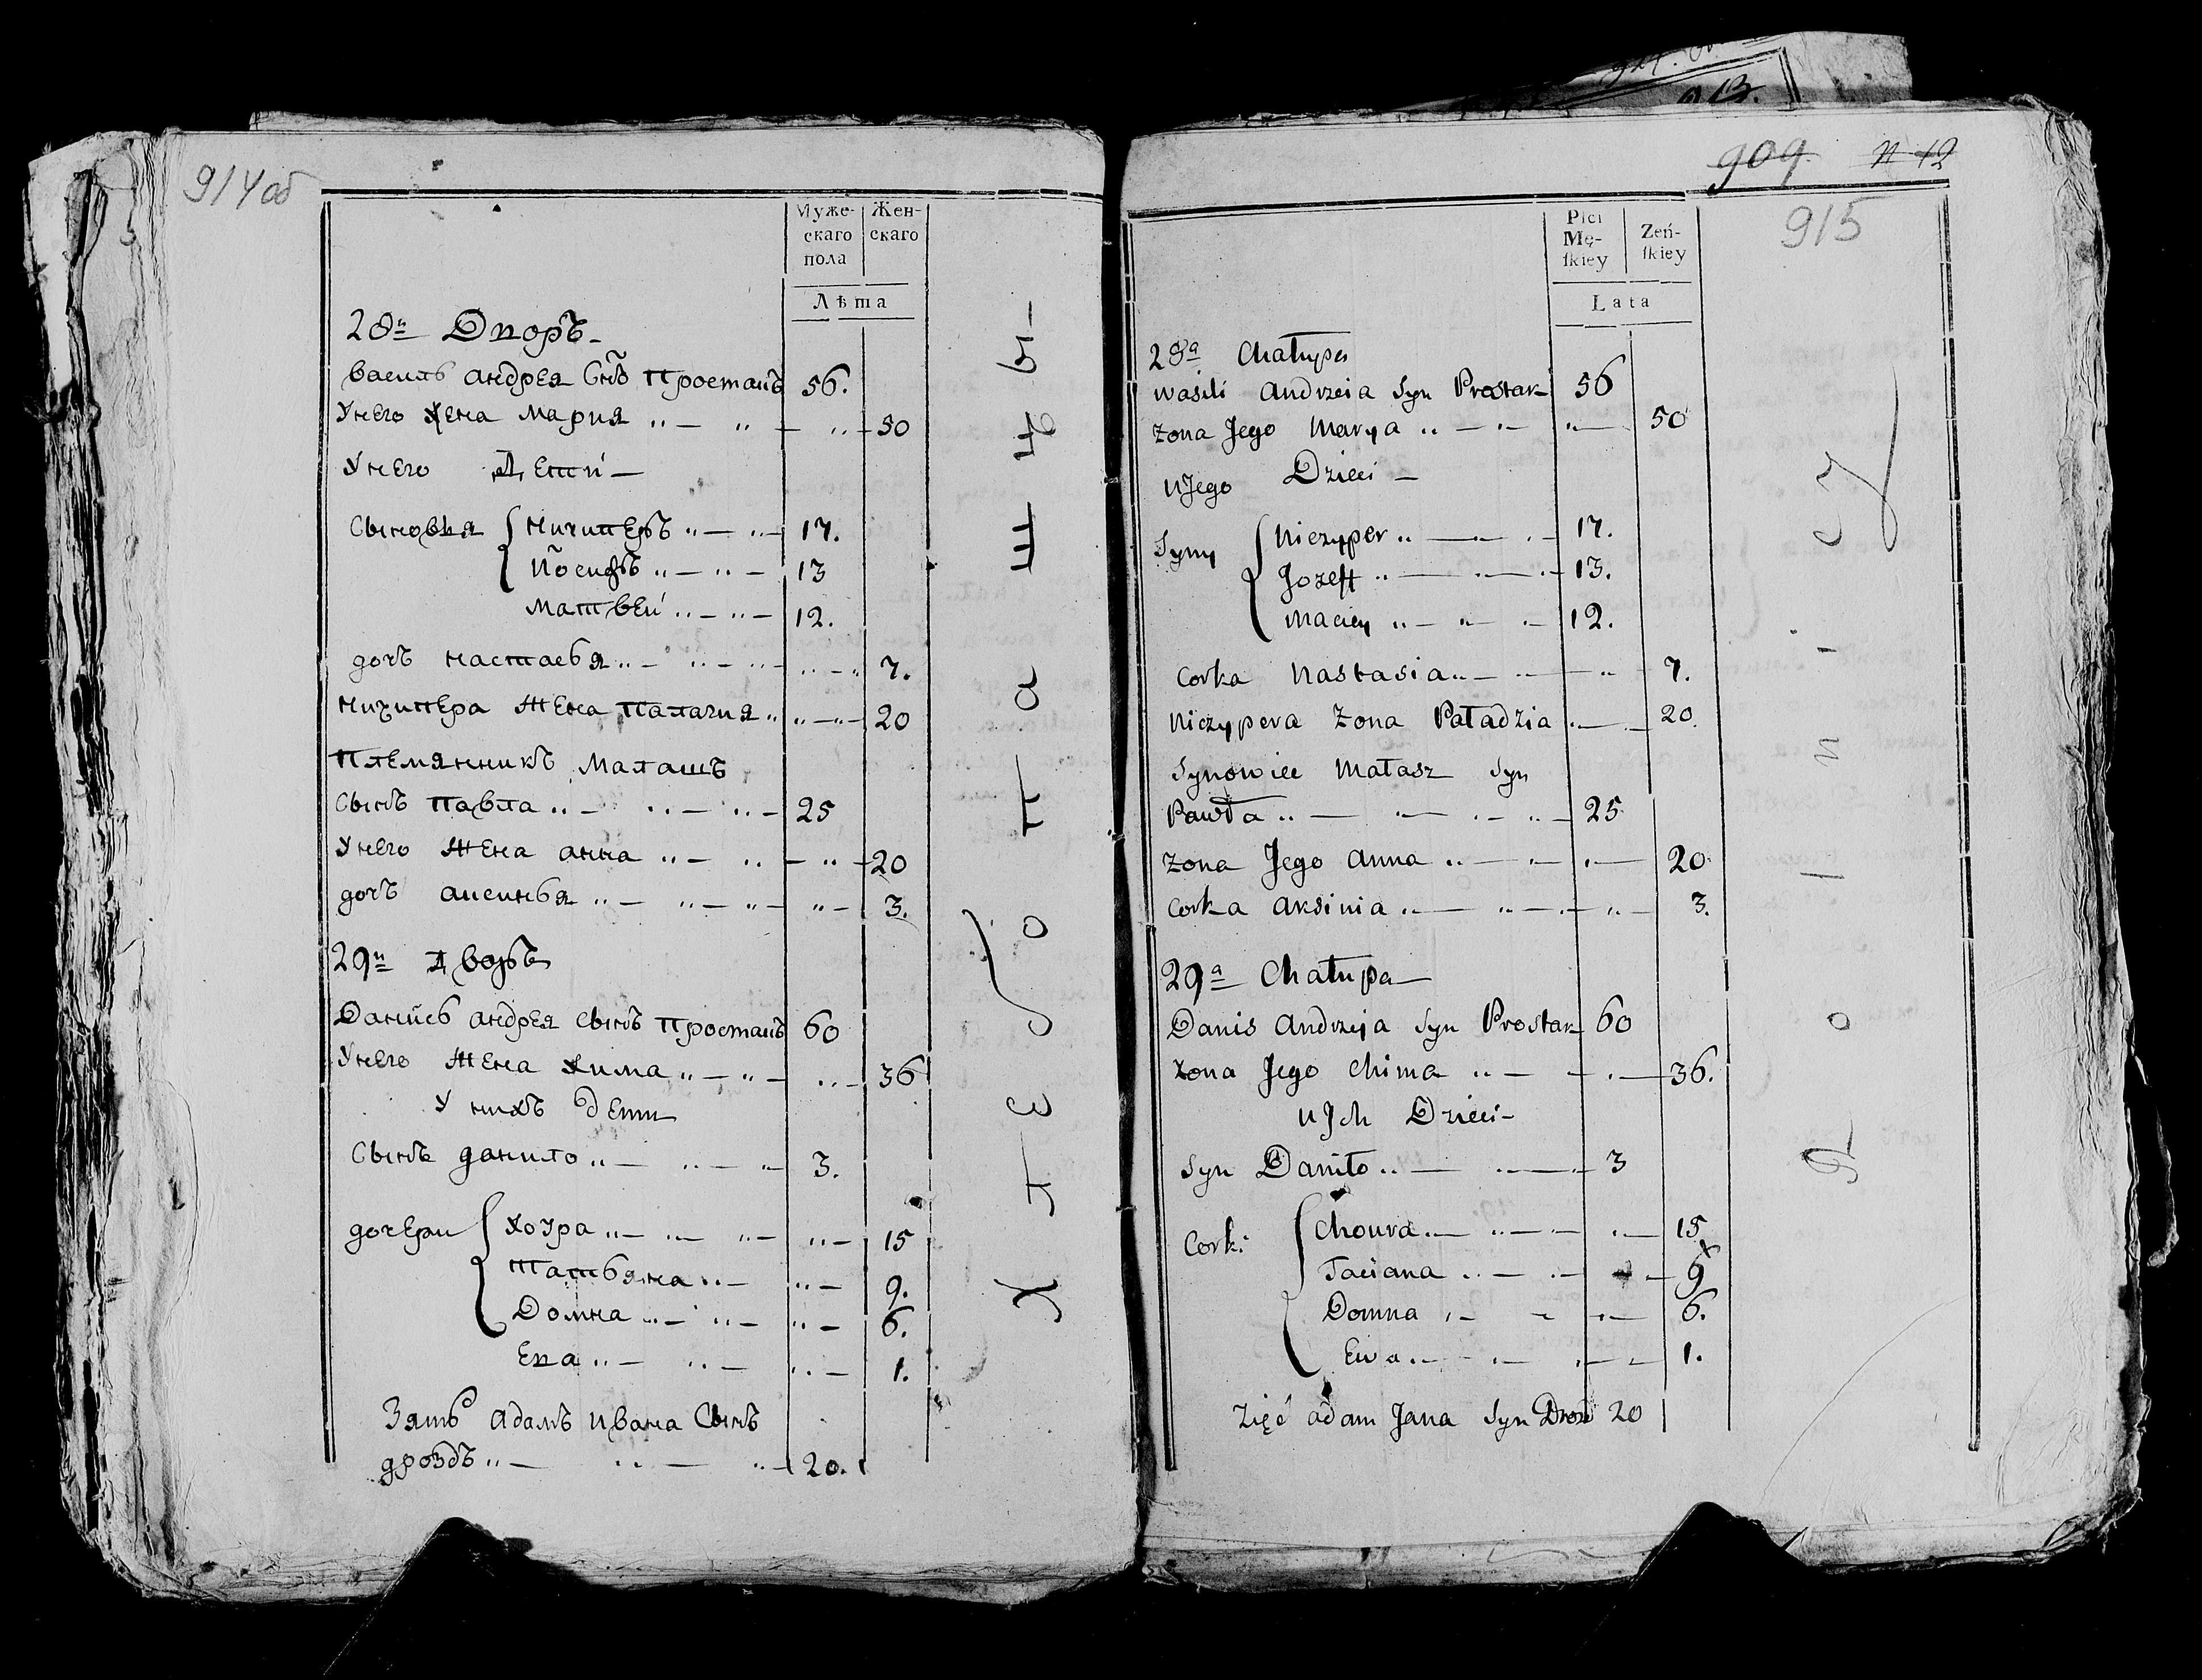 914об
Муже- Жен-
скаго скаго
пола
Лѣта
28й Дворъ
Василь Андрея Снъ Простакъ 56.
У него Жена Мария 50
У него Дети
Сыновья Ничиперъ 17.
Иосифъ 13
Матвей 12.
дочь Настасья 7.
Ничипера Жена Палагия 20
Племянникъ Малашъ
Сынъ Павла 25
У него Жена Анна 20
дочь Аксинья 3.
29й Дворъ
Данисъ Андрея Сынъ Простакъ 60
У него Жена Хима 36
У нихъ Дети
Сынъ Данило 3.
дочери Хоура 15
Татьяна 9.
Домна 6.
Ева 1.
Зять Адамъ Ивана Сынъ
дроздъ 20.
913.
909 N 12
915
Płci Zeń-
Mę- ſkiey
ſkiey
Lata
28a Chałupa
Wasili Andrzeia Syn Prostak 56
Zona Jego Marya 50
u Jego Dzieci
Syny Niczyper 17.
Jozeff 13.
Maciey 12.
Corka Nastasia 7.
Niczypera Zona Paładzia 20.
Synowiec Małasz Syn
Pawła 25
Zona Jego Anna 20
Corka Aksinia 3.
29a Chałupa
Danis Andrzeja Syn Prostak 60
Zona Jego Chima 36.
u Jch Dzieci
Syn Daniło 3
Corki Choura 15
Taciana 9
Domna 6.
Ewa 1.
Zięć Adam Jana Syn Drozd 20